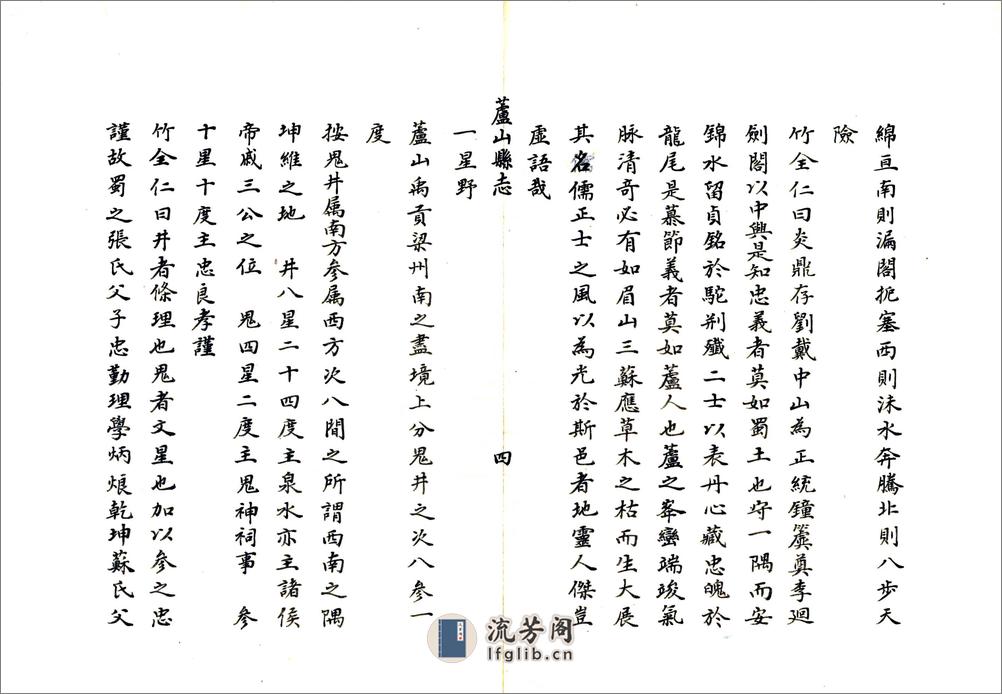 綿亘南則漏閣扼塞西則沬水奔騰北則八步天
險
竹全仁曰炎鼎存劉戴中山為正統鐘簴奠李廻
劍閣以中興是知忠義者莫如蜀土也守一隅而安
錦水留貞銘於駝荆殲二士以表丹心藏忠魄於
龍尾是慕節義者莫如蘆人也蘆之峯巒端竣氣
脉清奇必有如眉山三蘇應草木之枯而生大展
其名儒正士之風以為光於斯邑者地靈人傑豈
虛語哉
蘆山縣志
四
一星野
蘆山禹貢梁州南之盡境上分鬼井之次八參一
度
按鬼井属南方參属西方次八間之所謂西南之隅
坤維之地 井八星二十四度主泉水亦主諸侯
帝戚三公之位 鬼四星二度主鬼神祠事 參
十里十度主忠良孝謹
竹全仁曰井者條理也鬼者文星也加以參之忠
謹故蜀之張氏父子忠勤理學炳烺乾坤蘇氏父
流芳阁
lfglib.cn